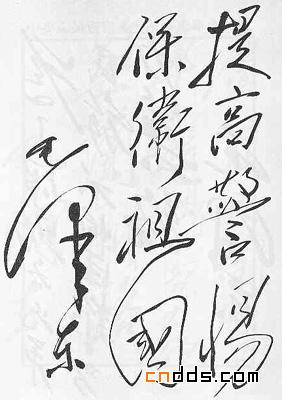 提高警惕
保衛祖國
毛澤东
cndds.com